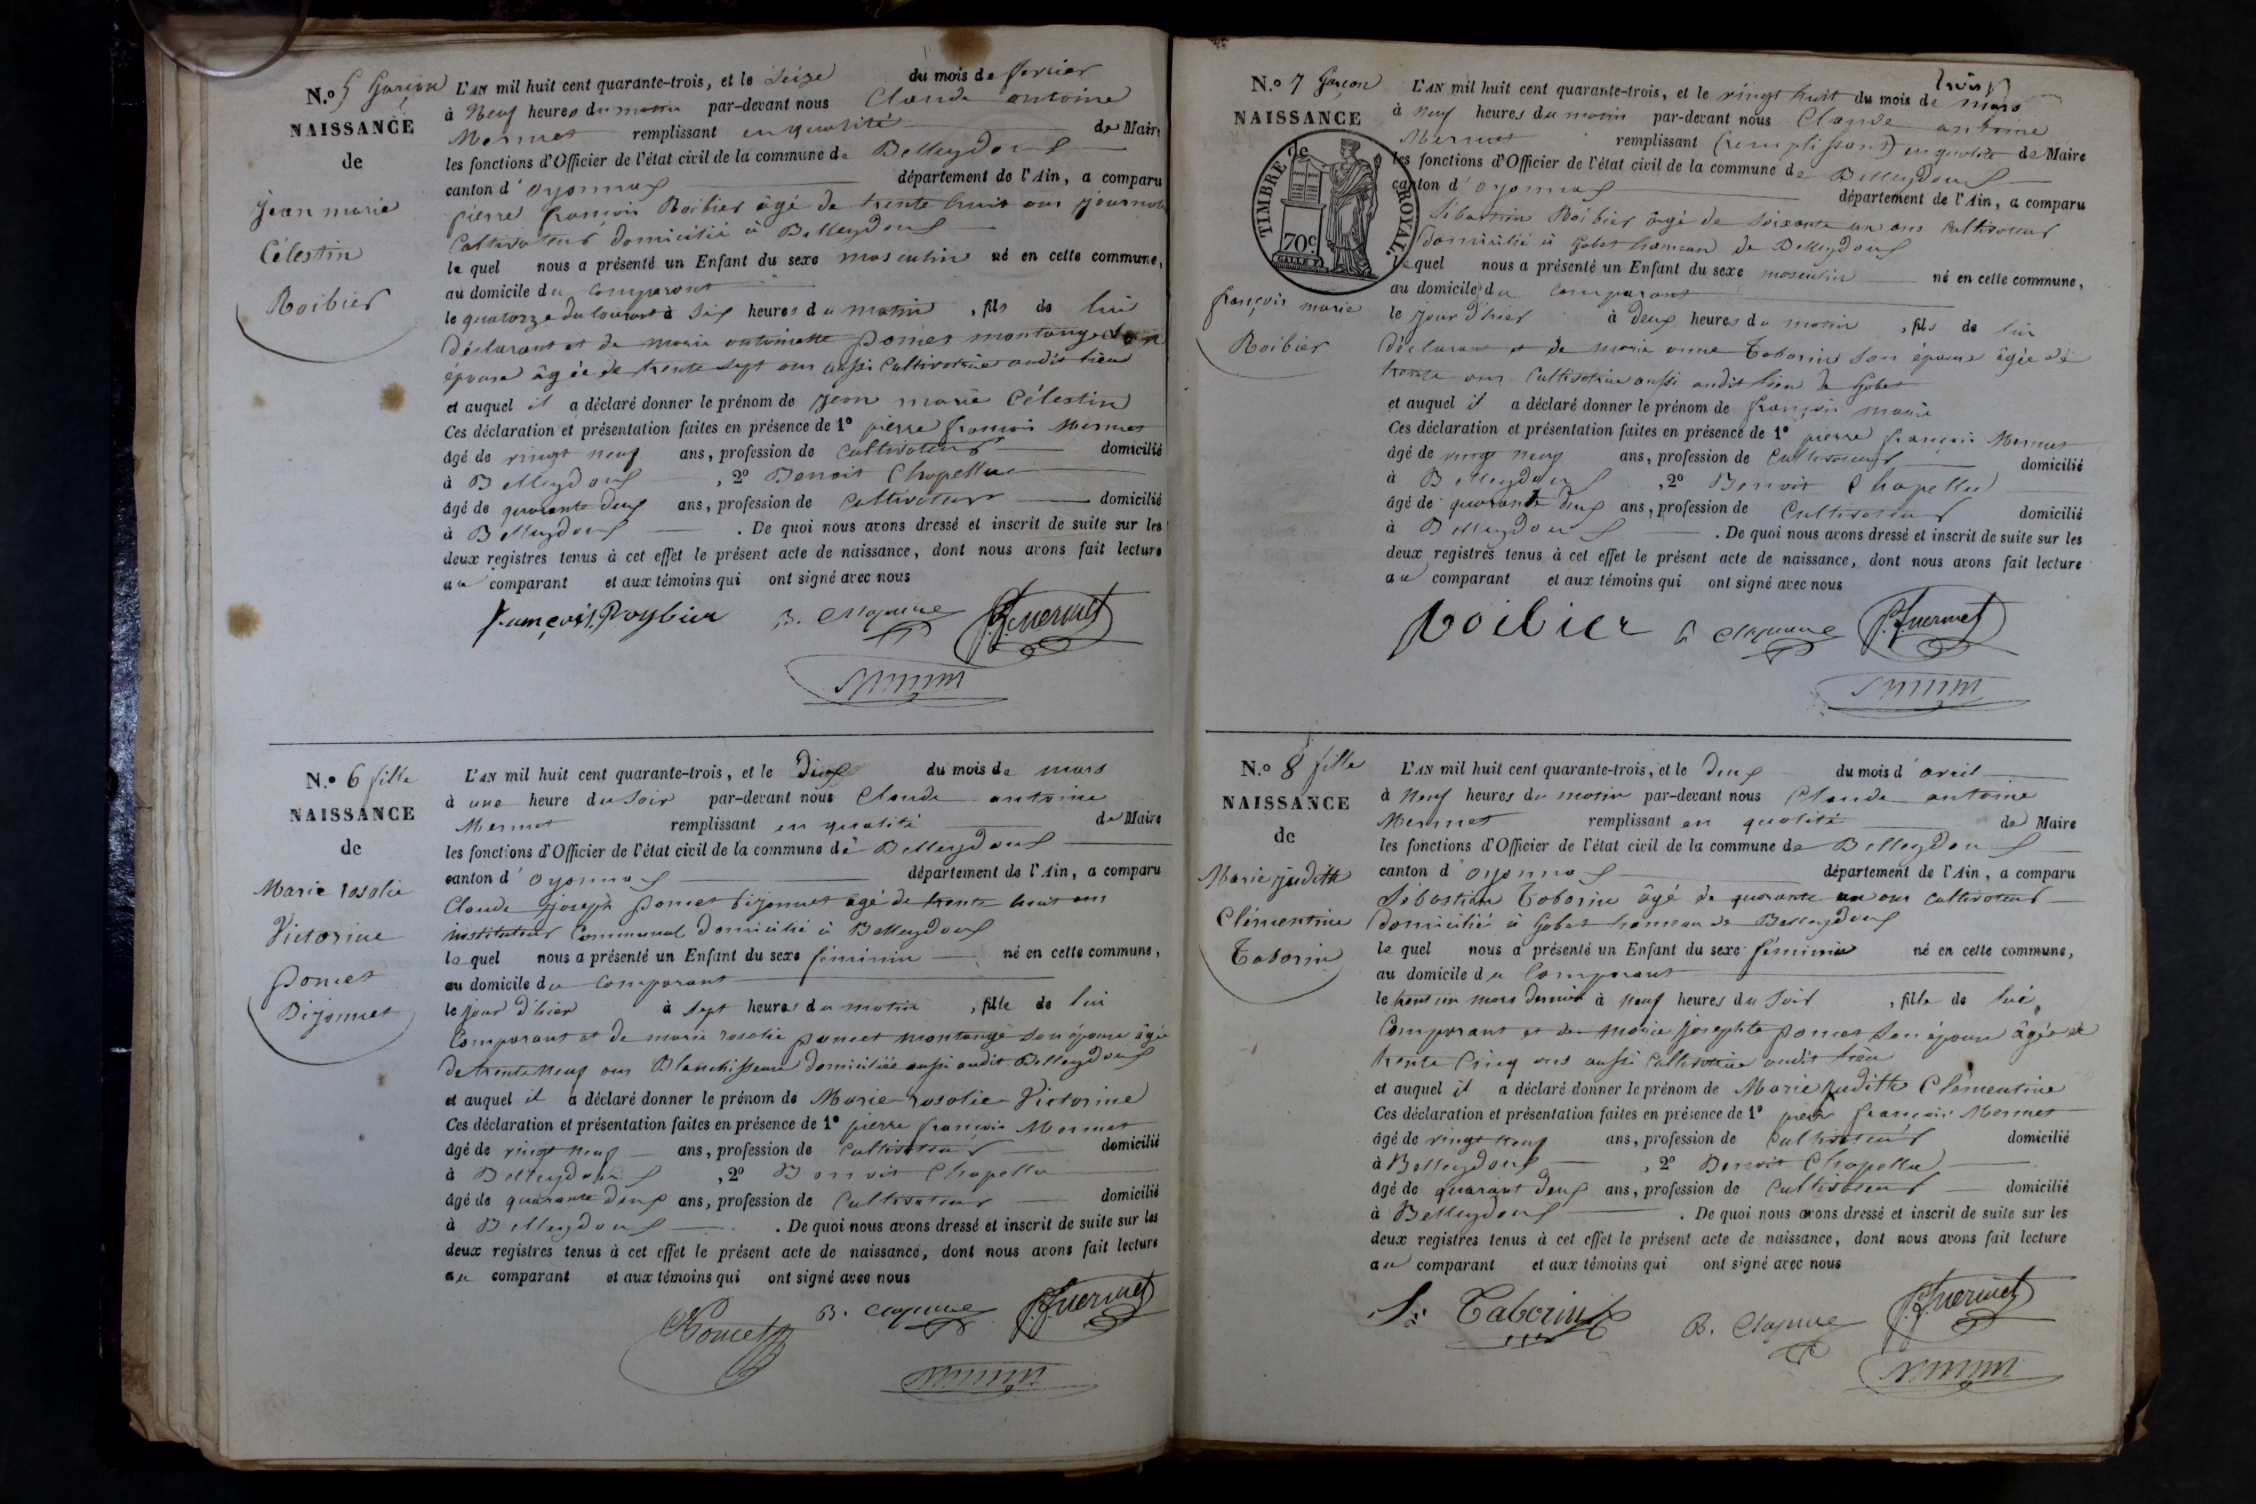 N.o 5 Garçon
NAISSANCE
de
Jean marie
Célestin
Roibier
L'AN mil huit cent quarante-trois, et le seize du mois de fevrier
à Neuf heures du matin par-devant nous Claude antoine
Mermet remplissant en qualité de Maire
les fonctions d'Officier de l'état civil de la commune de Belleydoux
canton d'oyonnax département de l'Ain, a comparu
pierre françois Roibier âgé de trente huit ans
Cultivateur domicilié à Belleydoux
le quel nous a présenté un Enfant du sexe masculin né en cette commune,
au domicile du comparant
le quatorze du courant à Six heures du matin, fils de lui
déclarant et de marie antoinette poncet montange son
épouse âgée de trente sept ans aussi Cultivatrice audit lieu
et auquel il a déclaré donner le prénom de Jean marie Célestin
Ces déclaration et présentation faites en présence de 1º pierre françois Mermet
âgé de vingt neuf ans, profession de Cultivateur domicilié
à Belleydoux, 2º Benoit Chapellue
âgé de quarante deux ans, profession de Cultivateur domicilié
à Belleydoux. De quoi nous avons dressé et inscrit de suite sur les
deux registres tenus à cet effet le présent acte de naissance, dont nous avons fait lecture
au comparant et aux témoins qui ont signé avec nous
françois Roybier
N.o 6 fille
NAISSANCE
de
Marie rosalie
Victorine
poncet
Bijonnet
L'AN mil huit cent quarante-trois, et le deux du mois de mars
à une heure du Soir par-devant nous Claude antoine
Mermet remplissant en qualité de Maire
les fonctions d'Officier de l'état civil de la commune de Belleydoux
canton d'oyonnax département de l'Ain, a comparu
Claude joseph poncet bijonnet âgé de trente huit ans
instituteur Communal domicilié à Belleydoux
le quel nous a présenté un Enfant du sexe féminin né en cette commune,
au domicile du comparant
le jour d'hier à sept heures du matin, fille de lui
Comparant et de marie rosalie poncet montange son épouse âgée
de trente neuf ans Blanchisseuse domiciliée aussi audit Belleydoux
et auquel il a déclaré donner le prénom de Marie rosalie Victorine
Ces déclaration et présentation faites en présence de 1º pierre françois Mermet
âgé de vingt neuf ans, profession de Cultivateur domicilié
à Belleydoux, 2º Benoit Chapellue
âgé de quarante deux ans, profession de Cultivateur domicilié
à Belleydoux. De quoi nous avons dressé et inscrit de suite sur les
deux registres tenus à cet effet le présent acte de naissance, dont nous avons fait lecture
au comparant et aux témoins qui ont signé avec nous
Poncet
N.o 7 Garçon
NAISSANCE
de
TIMBRE ROYAL.
70c
françois marie
Roibier
L'AN mil huit cent quarante-trois, et le vingt huit du mois de mars
à Neuf heures du matin par-devant nous Claude antoine
Mermet remplissant (remplissant) en qualité de Maire
les fonctions d'Officier de l'état civil de la commune de Belleydoux
canton d'oyonnax département de l'Ain, a comparu
Sébastien Roibier âgé de soixante un ans Cultivateur
domicilié à Gobet hameau de Belleydoux
le quel nous a présenté un Enfant du sexe masculin né en cette commune,
au domicile du comparant
le jour d'hier à deux heures du matin, fils de lui
déclarant et de marie anne Taborin son épouse âgée de
trente ans Cultivatrice aussi audit lieu de Gobet
et auquel il a déclaré donner le prénom de françois marie
Ces déclaration et présentation faites en présence de 1º pierre françois Mermet
âgé de vingt neuf ans, profession de Cultivateur domicilié
à Belleydoux, 2º Benoit Chapellue
âgé de quarante deux ans, profession de Cultivateur domicilié
à Belleydoux. De quoi nous avons dressé et inscrit de suite sur les
deux registres tenus à cet effet le présent acte de naissance, dont nous avons fait lecture
au comparant et aux témoins qui ont signé avec nous
Roibier
N.o 8 fille
NAISSANCE
de
Marie judith
Clémentine
Taborin
L'AN mil huit cent quarante-trois, et le deux du mois d'avril
à Neuf heures du matin par-devant nous Claude antoine
Mermet remplissant en qualité de Maire
les fonctions d'Officier de l'état civil de la commune de Belleydoux
canton d'oyonnax département de l'Ain, a comparu
Sébastien Taborin âgé de quarante un ans cultivateur
domicilié à Gobet hameau de Belleydoux
le quel nous a présenté un Enfant du sexe féminin né en cette commune,
au domicile du Comparant
le trent un mars dernier à neuf heures du Soir, fille de lui
Comparant et de marie josephte poncet son épouse âgée de
trente Cinq ans aussi Cultivatrice audit lieu
et auquel il a déclaré donner le prénom de Marie judith Clémentine
Ces déclaration et présentation faites en présence de 1º pierre françois Mermet
âgé de vingt neuf ans, profession de Cultivateur domicilié
à Belleydoux, 2º Benoit Chapellue
âgé de quarant deux ans, profession de Cultivateur domicilié
à Belleydoux. De quoi nous avons dressé et inscrit de suite sur les
deux registres tenus à cet effet le présent acte de naissance, dont nous avons fait lecture
au comparant et aux témoins qui ont signé avec nous
S. Taborin